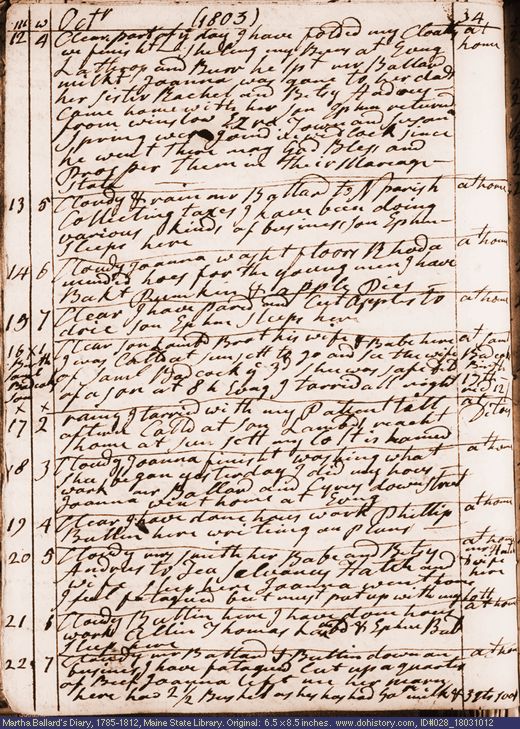 m w Octr (1803) 34
12 4 Clear part of ye day I have folded my Cloaths at
we finisht Shelling my Beens at Evng home
Lathrop and Burr he spt mr Ballard
milkt Joanna was gone to her dads
her sister Rachel and Betsy Andrews
Came here with her son Ephm returnd
from winslow Ezra Towns and Susan
Spring were Joind in wedlock since
he went there may God Bless and
Prosper them in their Marrage
State
13 5 Cloudy & rain mr Ballard to N parish at home
Collecting taxes I have been doing
various kinds of business son Ephm
sleeps here
14 6 Cloudy Joanna washt floors Rhoda at home
mended hoes for the young men I have
Bakt Pumkin & apple Pies
15 7 Clear I have Pared and Cut apples to at home
drie son Ephm sleeps here
16 Clear son and Brot his wife & Babe here at Saml
I was Calld at sun sett to go and see the wife Badcock
of Saml Badcock ye 3d she was safe dd
of a son at 8 h Evng I tarried all night
17 2 rainy I tarried with my Patient till at Ditos
aftern Calld at son Lambds reacht
home at sun sett my Cost is named
18 3 Cloudy Joanna finisht washing what at home
she began yesterday I did my hous
work mr Ballard and Cyrus down street
Joanna went home at Evng
19 4 Clear I have done hous work Phillip at home
Bullin here writing on Plans
20 5 Cloudy mrs Smith her Babe and Betsy at home
Andrus to Tea Selvanus Hatch and
wife sleep here Joanna went home wife here
I feel fatagued but must put up with my lott
21 6 Cloudy Bullin here I have done hous at home
work Allin Thomas had & Ephm Bal
sleep here
22 7 Cloudy mr Ballard & Bullin down on at home
business I have fatagued Cut up a quarter
of Beef Joanna left me
here had 2 1/2 Bushels
Martha Ballard's Diary, 1785-1812, Maine State Library. Original: 6.5 x 8.5 inches. www.dohistory.com, ID#028_18031012